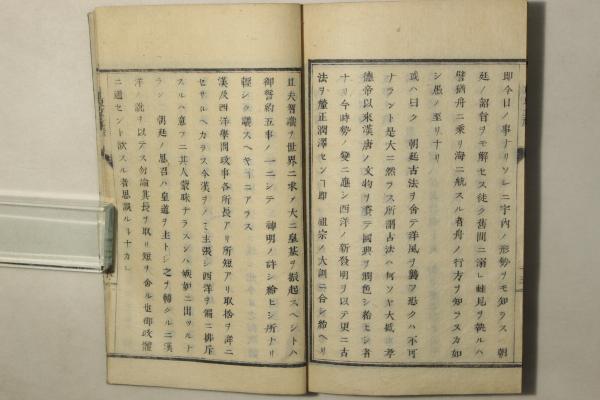 即今日ノ事ナリソレニ宇内ノ形勢ヲモ知ラス 朝
廷ノ詔旨ヲモ解セス徒ク舊聞ニ溺レ蛙見ヲ執ルハ
譬猶舟ニ乗リ海ニ航スル者舟ノ行方ヲ知ラスカ如
シ愚ノ至リナリ
或ハ曰ク 朝廷古法ヲ舎テ洋風ヲ襲フ恐クハ不可
ナラント是大ニ然ラス所謂古法ハ何ソヤ大抵 孝
德帝以來漢唐ノ文物ヲ賚テ國典ヲ潤色シ給ヒシ者
ナリ今時勢ノ變ニ應シ西洋ノ新發明ヲ以テ更ニ古
法ヲ釐正潤澤セント即 祖宗ノ大訓ニ合シ給ヘリ
且夫智識ヲ世界ニ求メ大ニ皇基ヲ振起スヘシトハ
御誓約五事ノ一ニシテ 神明ノ許シ給ヒシ所ナリ
輕シク議スヘキニアラス
漢及西洋學問政事各所長アリ所短アリ取捨ヲ詳ニ
セサルヘカラス今漢ヲノミ主張シ西洋ヲ備ニ排斥
スルハ意フニ其人蒙昧ナラスンハ嫉妬ニ出ツルナ
ラン 朝廷ノ思召ハ皇道ヲ主トシ之ヲ輔クルニ漢
洋ノ説ヲ以テス勿論其長ヲ取リ短ヲ舎ル也御政體
ニ通セント欲スル者思識ルヘトカ